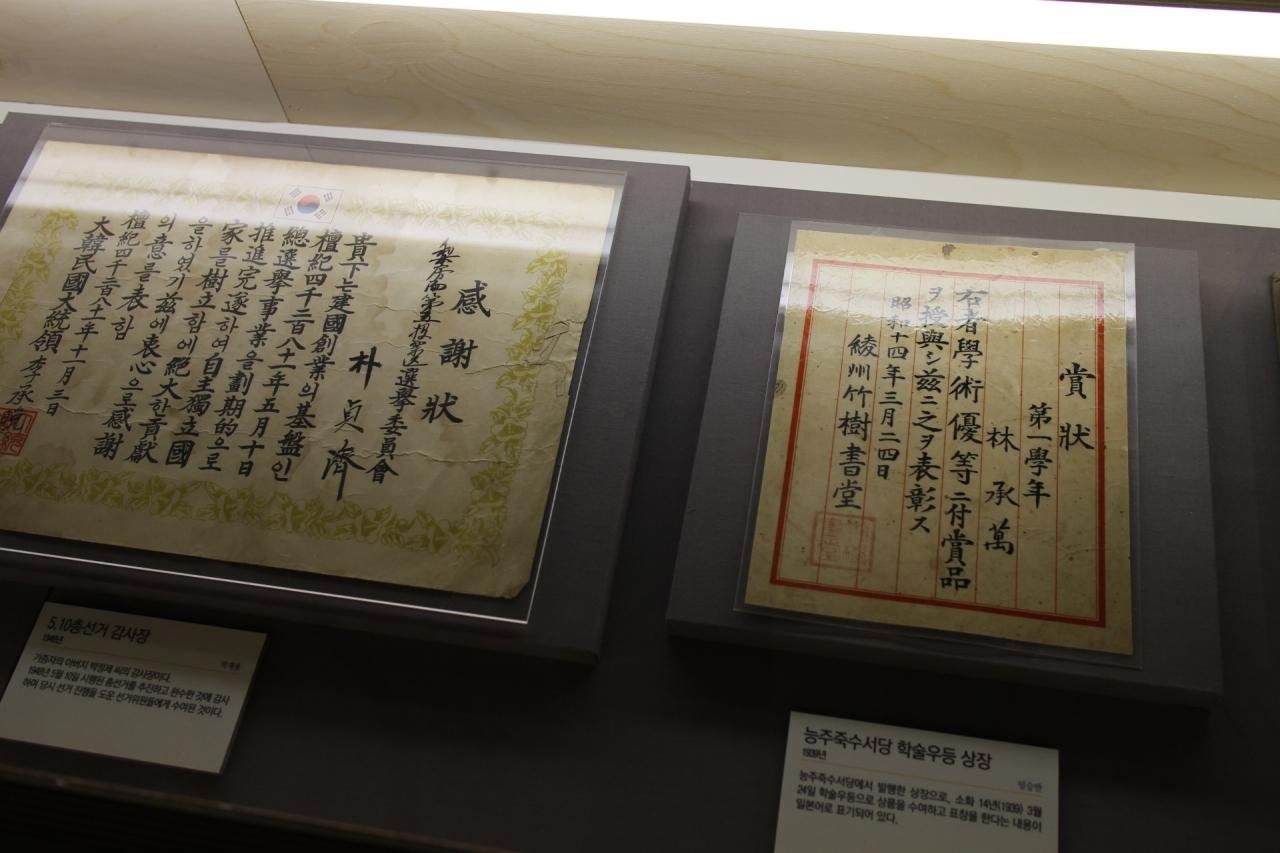 感謝狀
選擧委員會
朴貞濟
貴下는建國創業의基盤인
檀紀四千二百八十一年五月十日
總選擧事業을劃期的으로
推進完遂하여自主獨立國
家를樹立함에絶大한貢獻
을하였기玆에表心으로感謝
의意를表함
檀紀四千二百八十年十一月三日
大韓民國大統領 李承晩
賞狀
第一學年
林承萬
右者學術優等ニ付賞品
ヲ授與シ玆ニ之ヲ表彰ス
昭和十四年三月二四日
綾州竹樹書堂
5.10총선거 감사장
1948년
기증자의 아버지 박정제 씨의 감사장이다.
1948년 5월 10일 시행된 총선거를 추진하고 완수한 것에 감사
하며 당시 선거 진행을 도운 선거위원들에게 수여된 것이다.
능주죽수서당 학술우등 상장
1939년
임승만
능주죽수서당에서 발행한 상장으로, 소화 14년(1939) 3월
24일 학술우등으로 상품을 수여하고 표창을 한다는 내용이
일본어로 표기되어 있다.